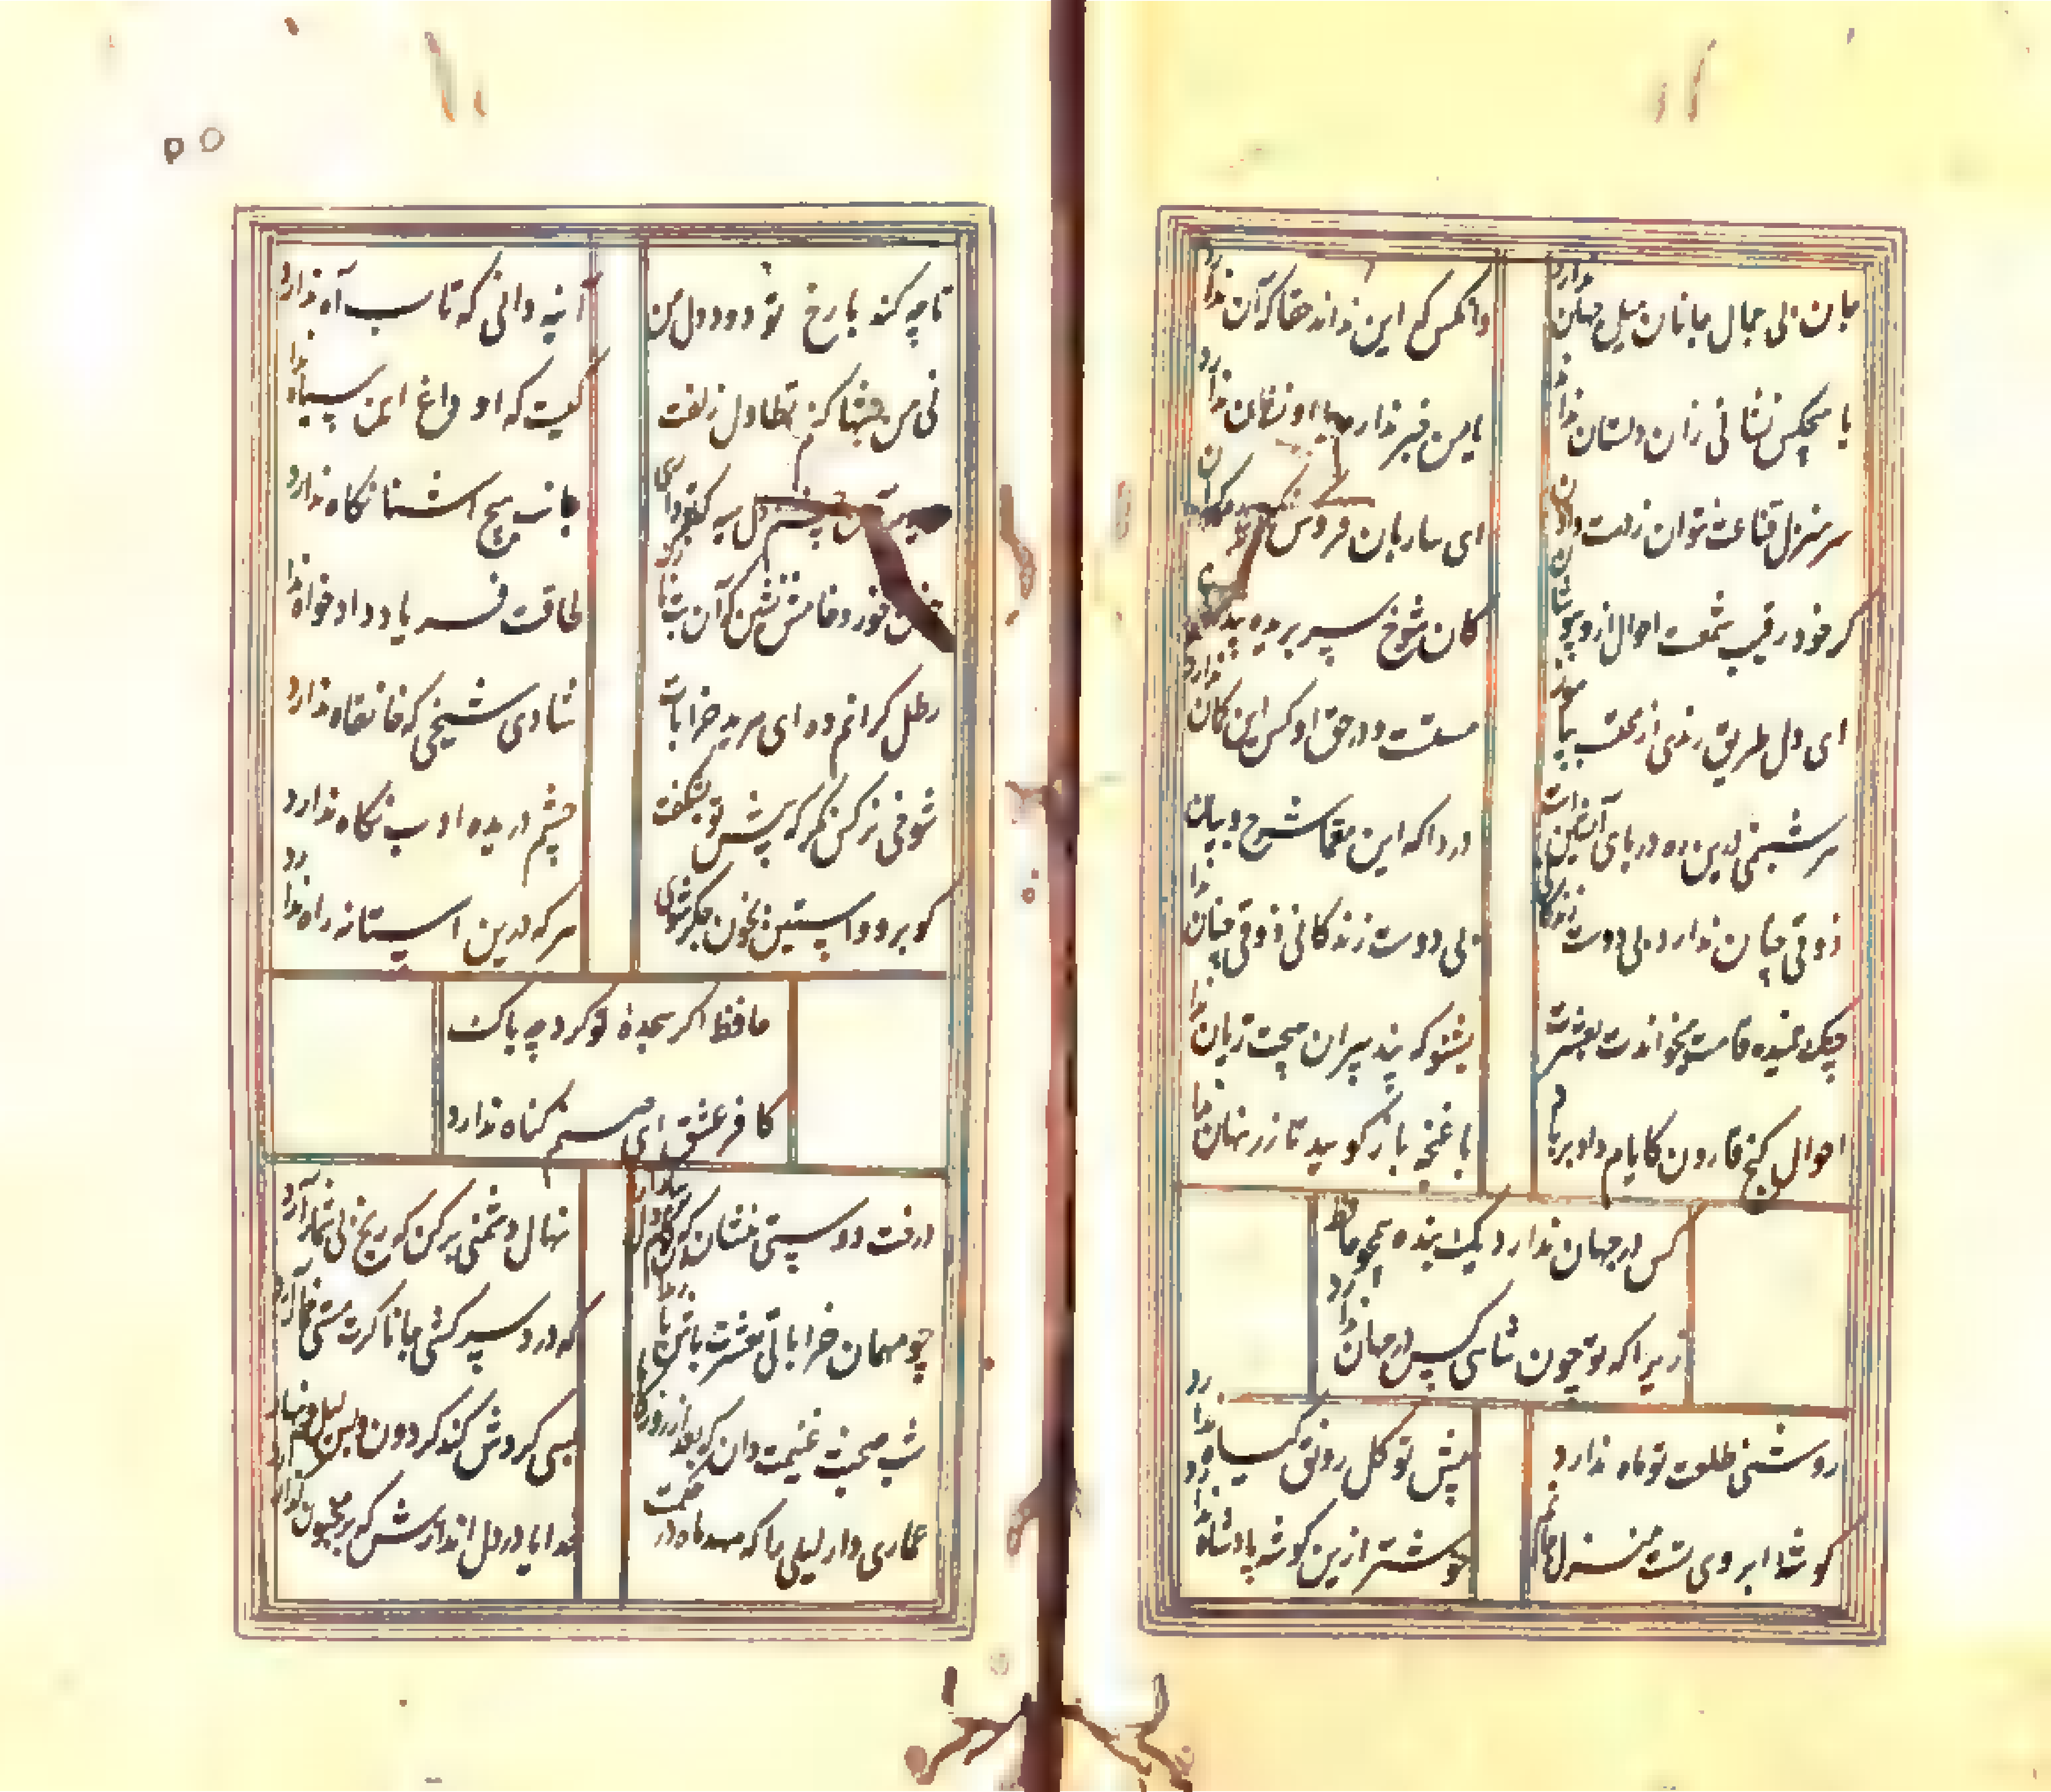 جان بی جمال جانان میل جهان ندارد
وانکس که این ندارد حقا که آن ندارد
با هیچکس نشانی زان دلستان ندارد
یا من خبر ندارم یا او نشان ندارد
سر منزل قناعت نتوان ز دست دادن
ای ساربان فروکش
گر خود رقیب شمعست احوال ازو بپوشان
کان شوخ سر بریده
ای دل طریق رندی از محتسب بیاموز
مستست و در حق او کس این گمان ندارد
هر شبنمی درین ره دریای آتشین است
دردا که این معما شرح و بیان ندارد
ذوقی چنان ندارد بی دوست زندگانی
بی دوست زندگانی ذوقی چنان ندارد
چنگ خمیده قامت میخواندت بعشرت
بشنو که پند پیران هیچت زیان ندارد
احوال گنج قارون کایام داد برباد
با غنچه باز گویید تا زر نهان ندارد
کس در جهان ندارد یک بنده همچو حافظ
زیرا که تو چون شاهی کس در جهان ندارد
روشنی طلعت تو ماه ندارد
پیش تو گل رونق گیاه ندارد
گوشه ابروی تست منزل جانم
خوشتر ازین گوشه پادشاه ندارد
تا چه کند با رخ تو دود دل من
آینه دانی که تاب آه ندارد
نی من تنها کشم تطاول زلفت
کیست که او داغ این سیاه ندارد
چشم دل سیه که تو داری
جانب هیچ آشنا نگاه ندارد
خون خور و خامش نشین که آن
طاقت فریاد دادخواه ندارد
رطل گرانم ده ای مرید خرابات
شادی شیخی که خانقاه ندارد
شوخی نرگس نگر که پیش تو بشکفت
چشم دریده ادب نگاه ندارد
گو برو و آستین بخون جگر شوی
هر که درین آستانه راه ندارد
حافظ اگر سجدهٔ تو کرد چه باک
کافر عشق ای صنم گناه ندارد
درخت دوستی بنشان که کام دل ببار آرد
نهال دشمنی برکن که رنج بی شمار آرد
چو مهمان خراباتی بعشرت باش با رندان
که درد سر کشی جانا گرت مستی خمار آرد
شب صحبت غنیمت دان که بعد از روزگار ما
بسی گردش کند گردون و بس لیل و نهار آرد
عماری دار لیلی را که مهد ماه در حکمست
خدایا در دل اندازش که بر مجنون گذار آرد